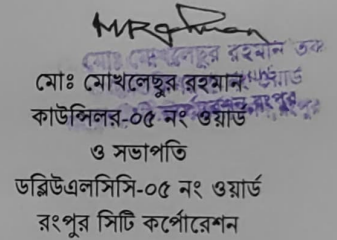 মোঃ মোখলেছুর রহমান
মোঃ মোখলেছুর রহমান
কাউন্সিলর-০৫ নং ওয়ার্ড
ও সভাপতি
ডব্লিউএলসিসি-০৫ নং ওয়ার্ড
রংপুর সিটি কর্পোরেশন